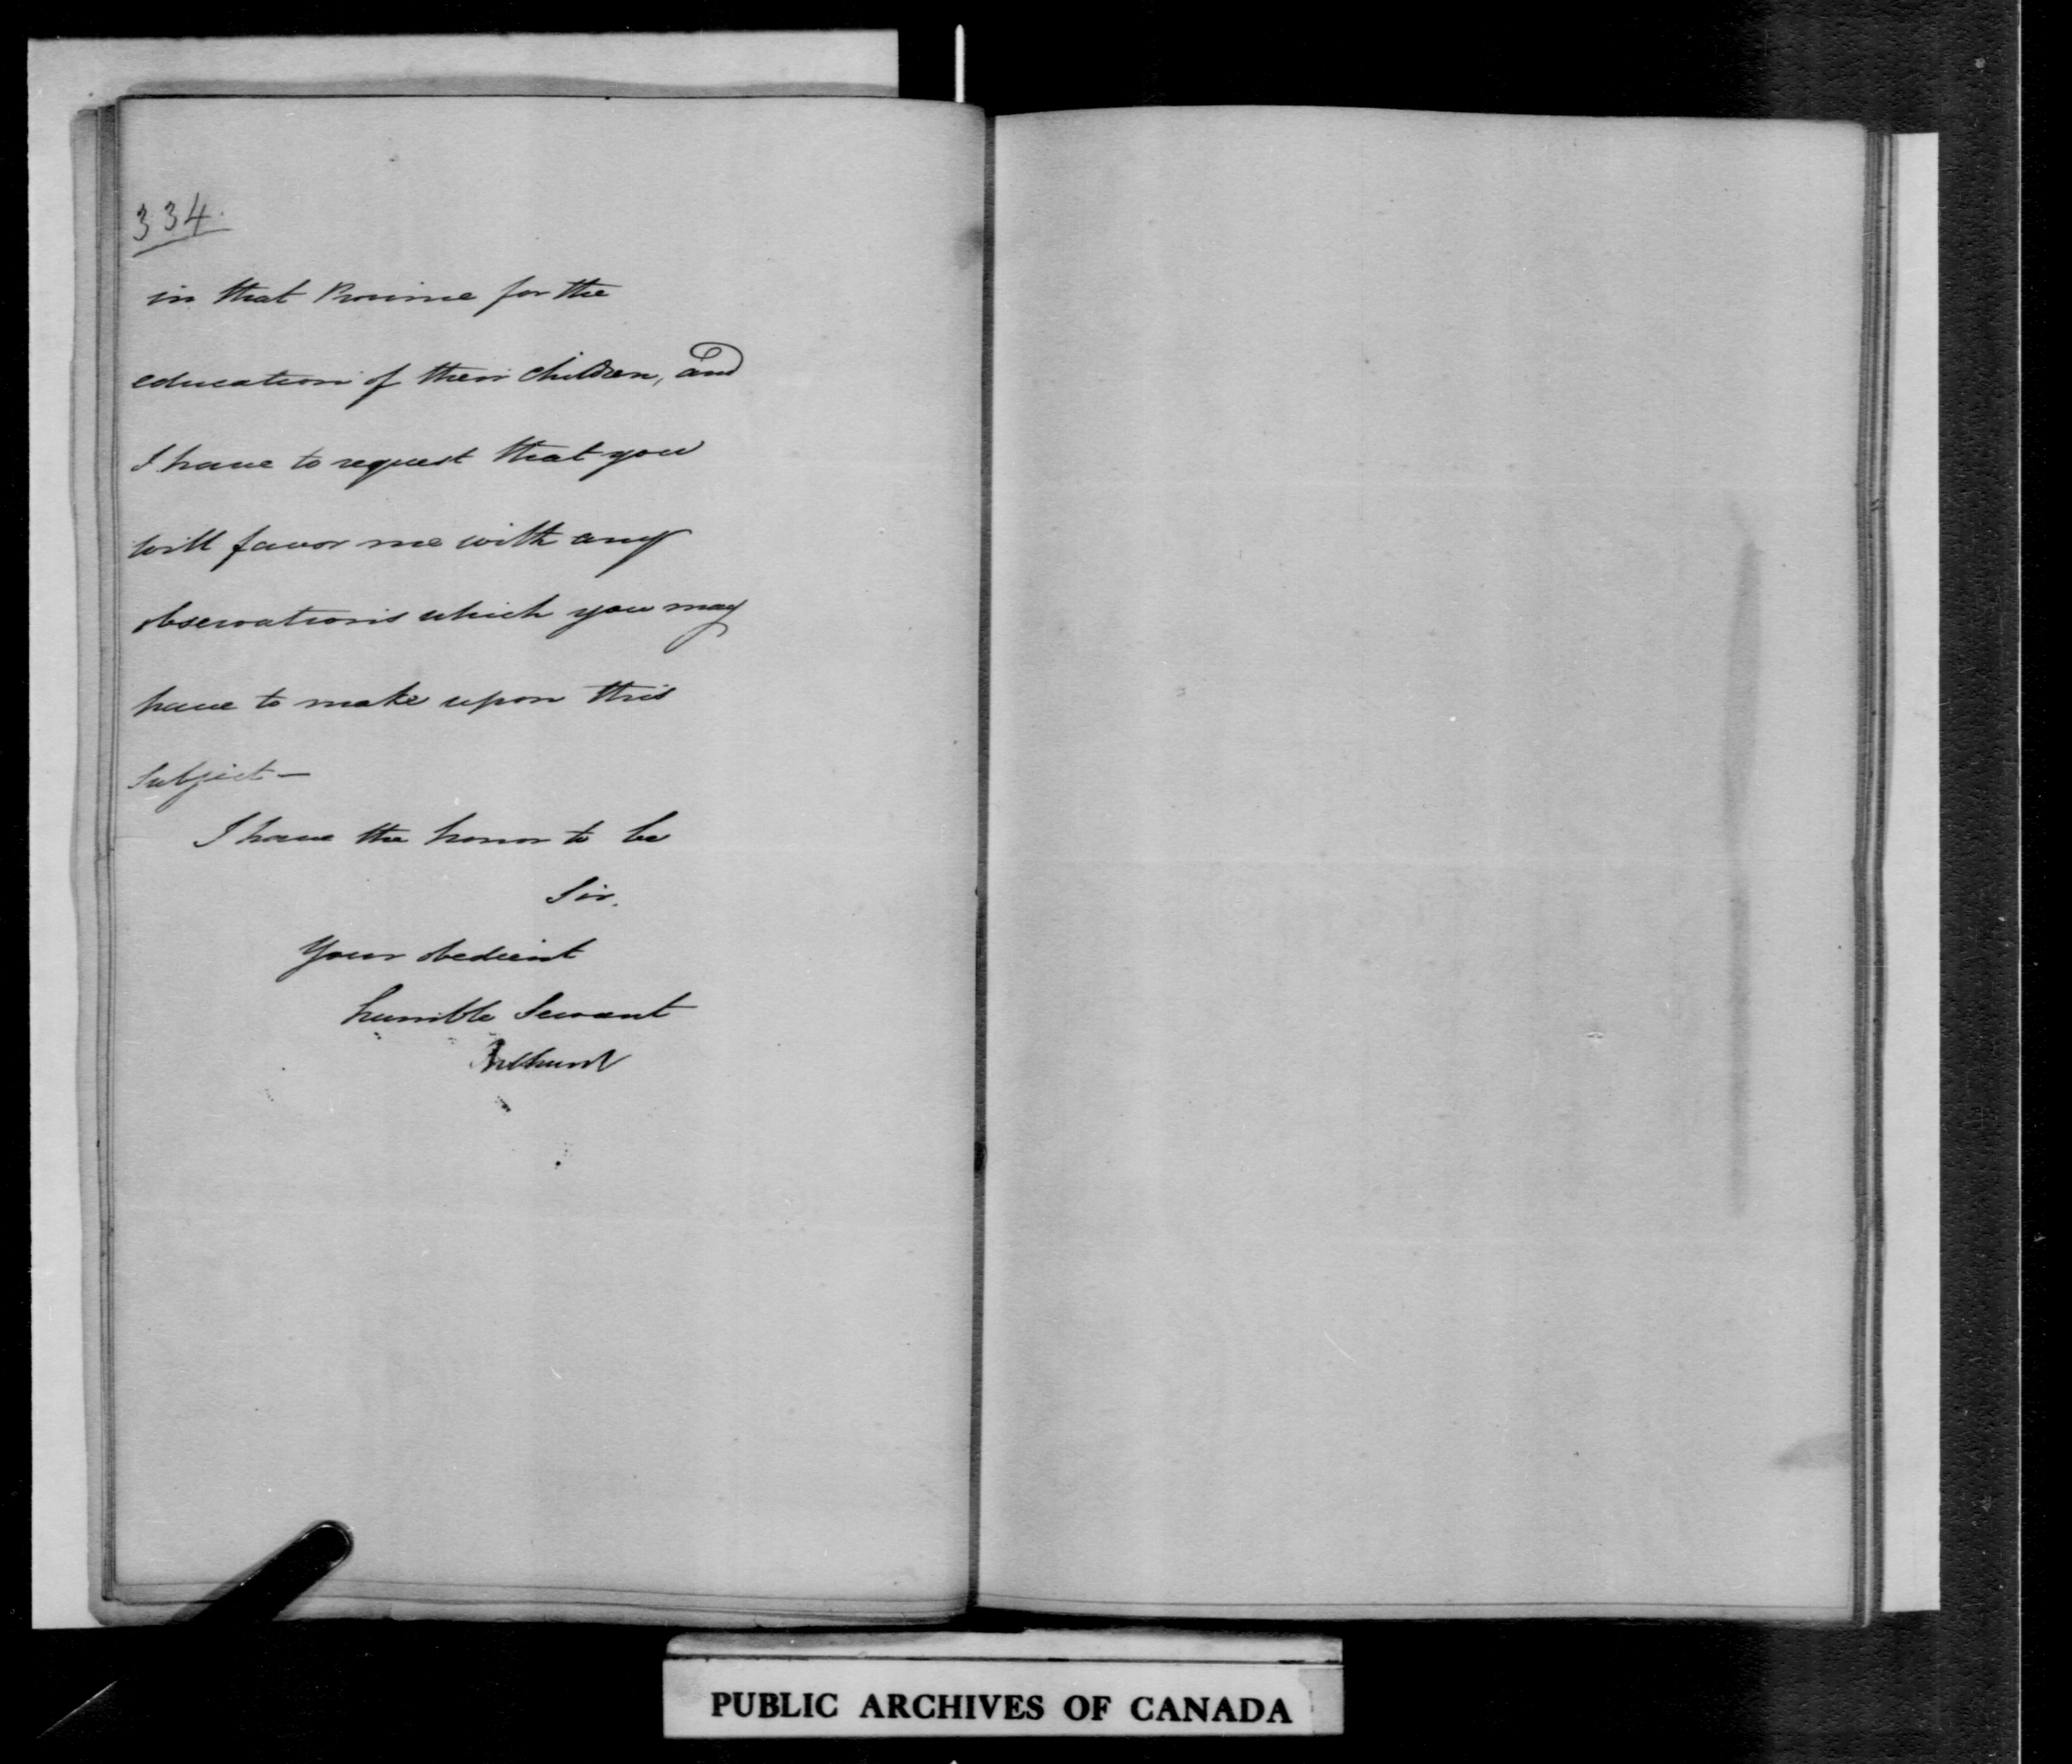 334.
in that Province for the
education of their children, and
I have to request that you
will favor me with any
observations which you may
have to make upon this
subject —
I have the honor to be
Sir.
Your obedient
humble Servant
Bathurst
PUBLIC ARCHIVES OF CANADA